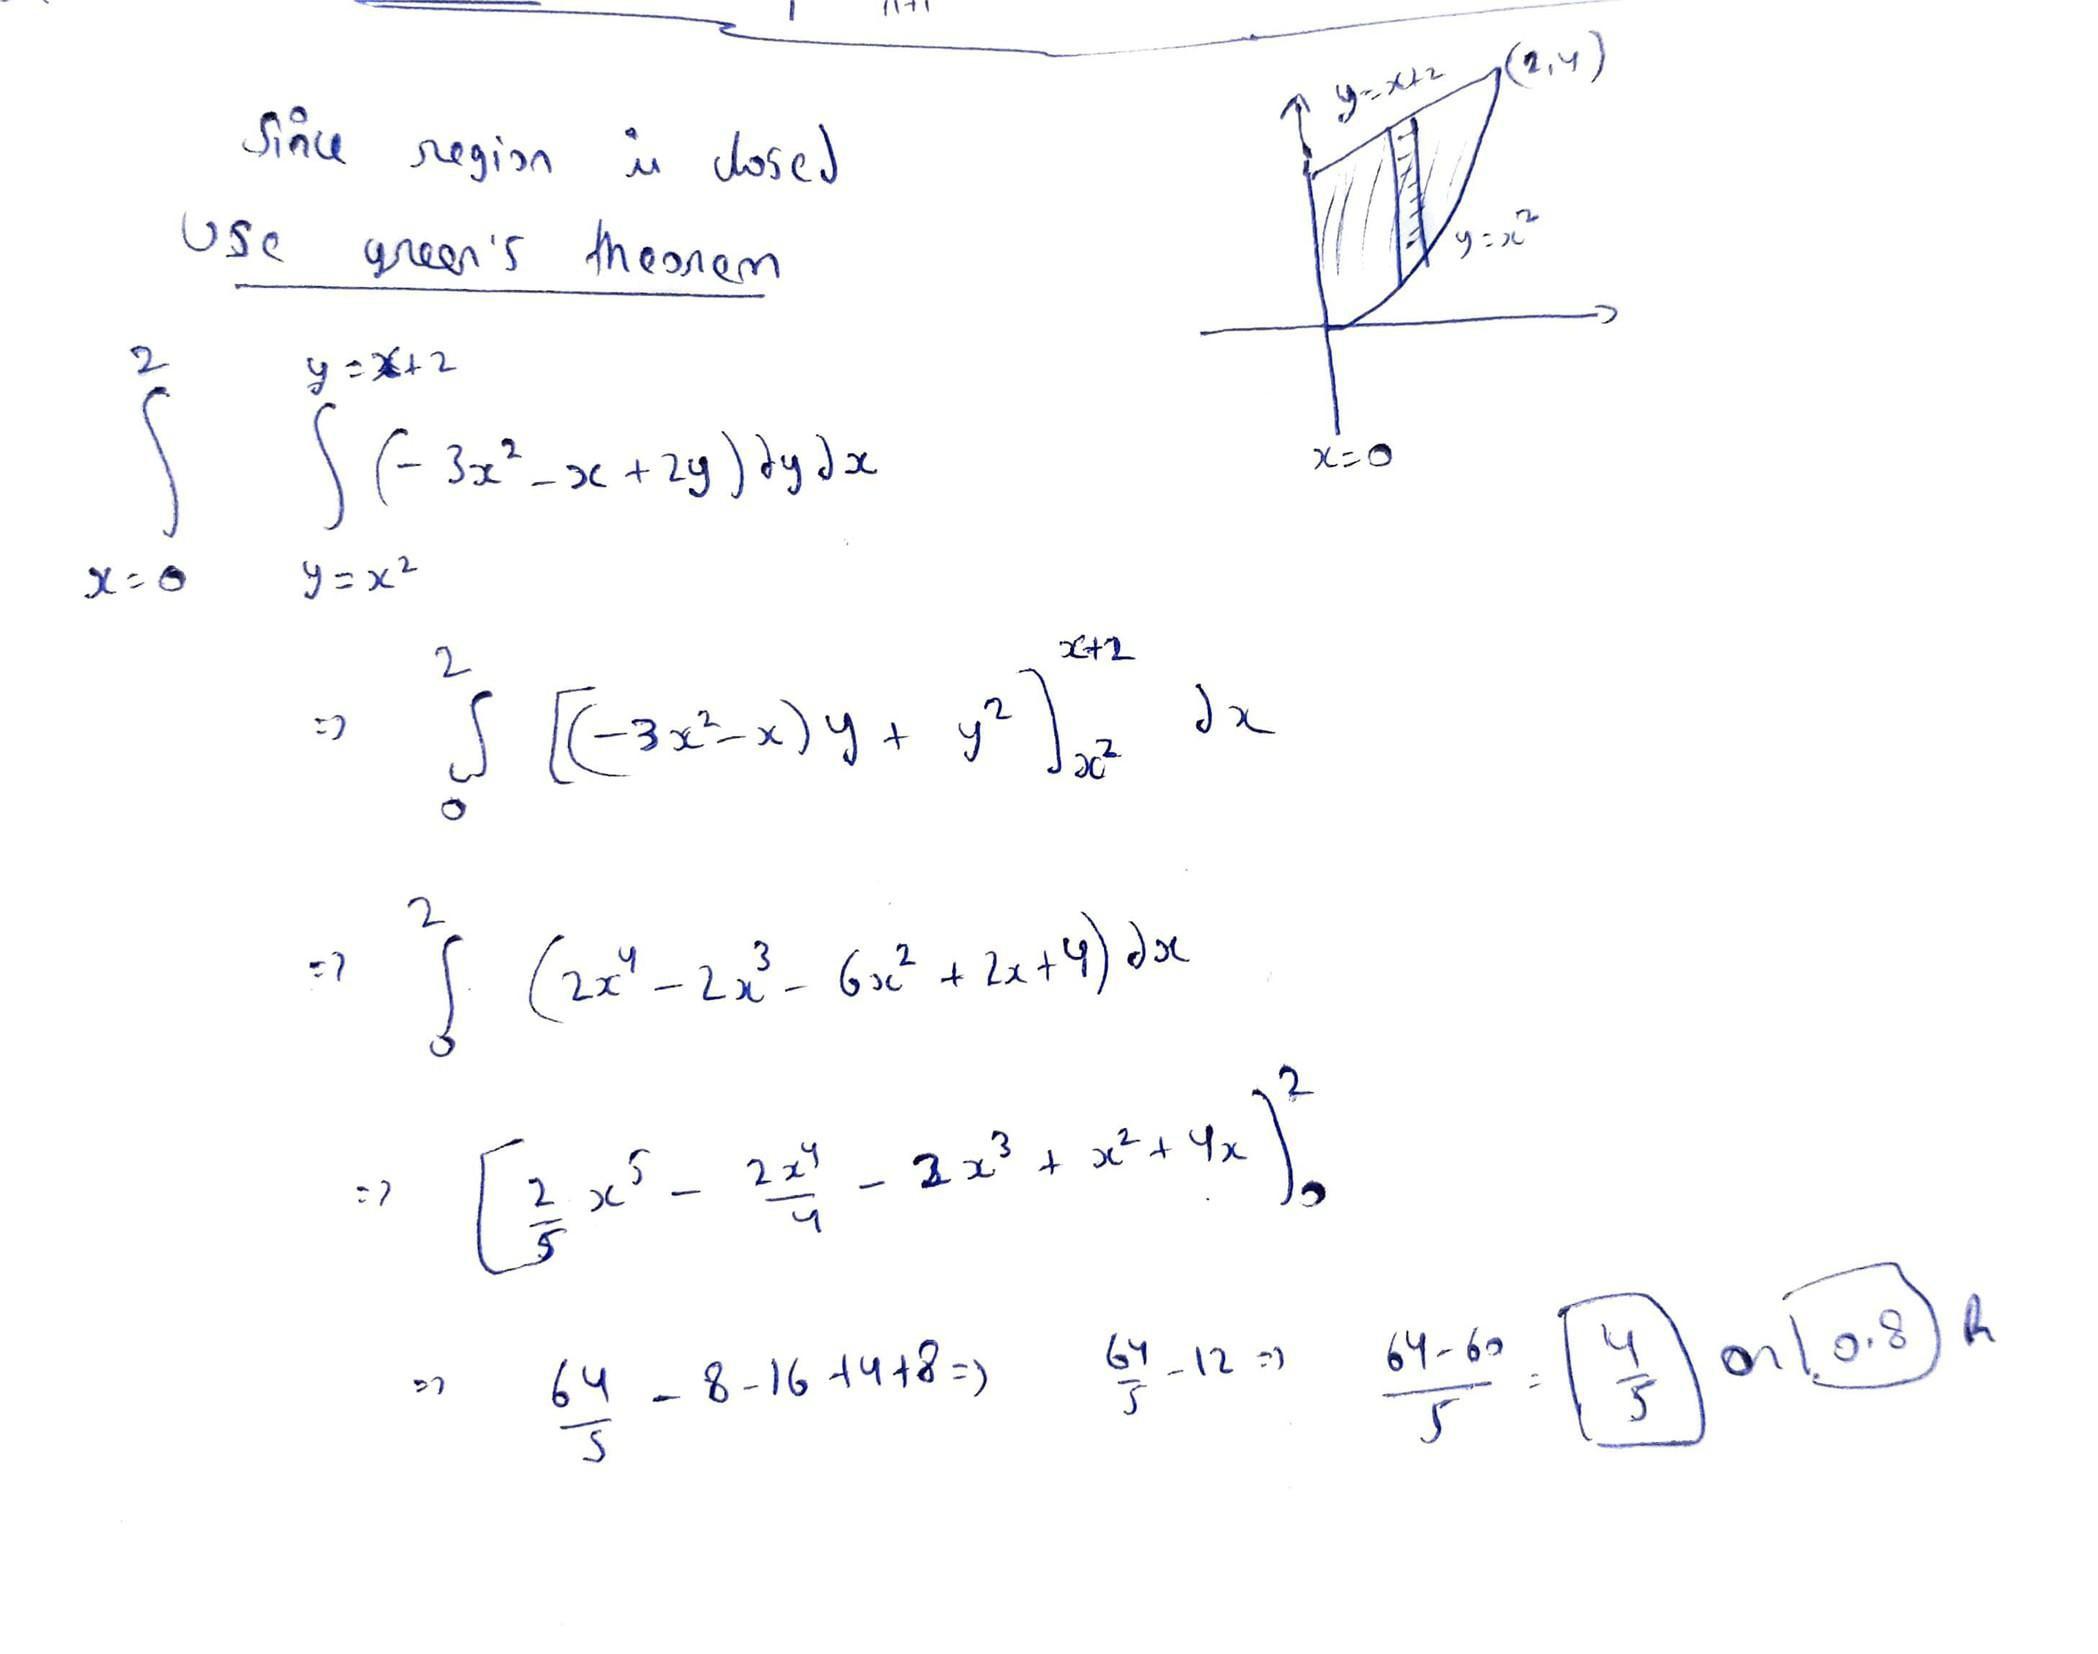 Since region is closed
Use green's theorem
y=x+2
(2,4)
y=x²
x=0
2 y=x+2
∫ ∫ (-3x²-x+2y)dydx
x=0 y=x²
=> ∫₀² [(-3x²-x)y+y²]_{x²}^{x+2} dx
=> ∫₀² (2x⁴-2x³-6x²+2x+4)dx
=> [2/5 x⁵ - 2x⁴/4 - 2x³ + x² + 4x]₀²
=> 64/5 - 8-16+4+8 => 64/5 - 12 => 64-60/5 = 4/5 or 0.8